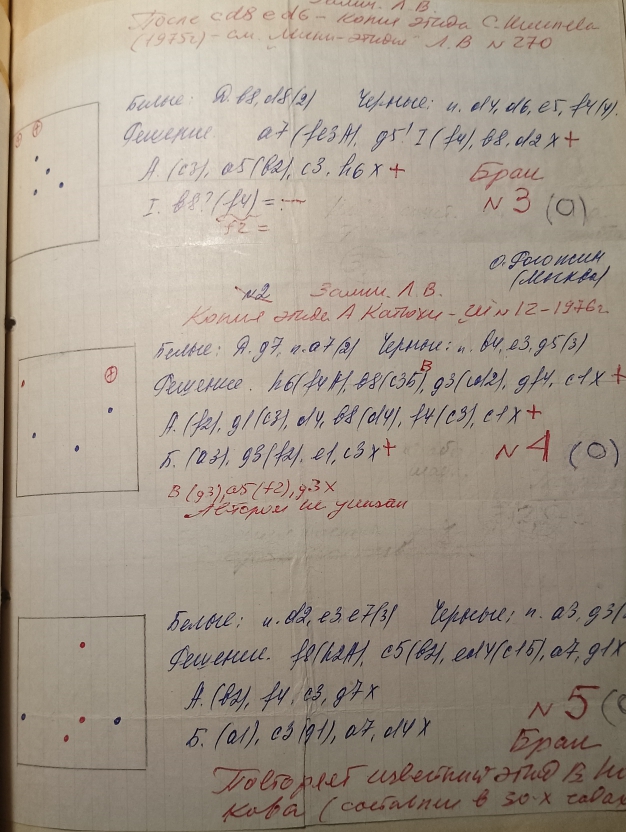 Залит. Л.В.
После cd8 ed6 - копия этюда С.
(1975г) - см. Мини-этюды Л.В №270
Белые: Д. b8, d8 (2) Черные: п. d4, d6, e5, f4 (4).
Решение a7 (fe3A), g5! I (f4), b8, d2 X +
А. (c3), a5 (b2), c3, h6 X +
I. b8? (f4) = 
f2 =
Брак
№3 (0)
(Москва)
№2 Залит. Л.В.
Копия этюда А - №12-1976г.
Белые: Д. g7, п. a7 (2) Черные: п. b4, e3, g5 (3)
Решение. h6 (f4A), b8 (c3Б) В, g3 (cd2), gf4, c1 X +
А. (f2), g1 (c3), d4, b8 (d4), f4 (c3), c1 X +
Б. (a3), g3 (f2), e1, c3 X +
№4 (0)
В (g3), a5 (f2), g3 X
Автором не указан
Белые: п. d2, e3, e7 (3) Черные: п. a3, g3
Решение. f8 (h2A), c5 (b2), ed4 (c1Б), a7, g1X
А. (b2), f4, c3, g7 X
Б. (a1), c3 (g1), a7, d4 X
№5
Брак
Повторяет известный этюд В.
кова (составлен в 30-х годах